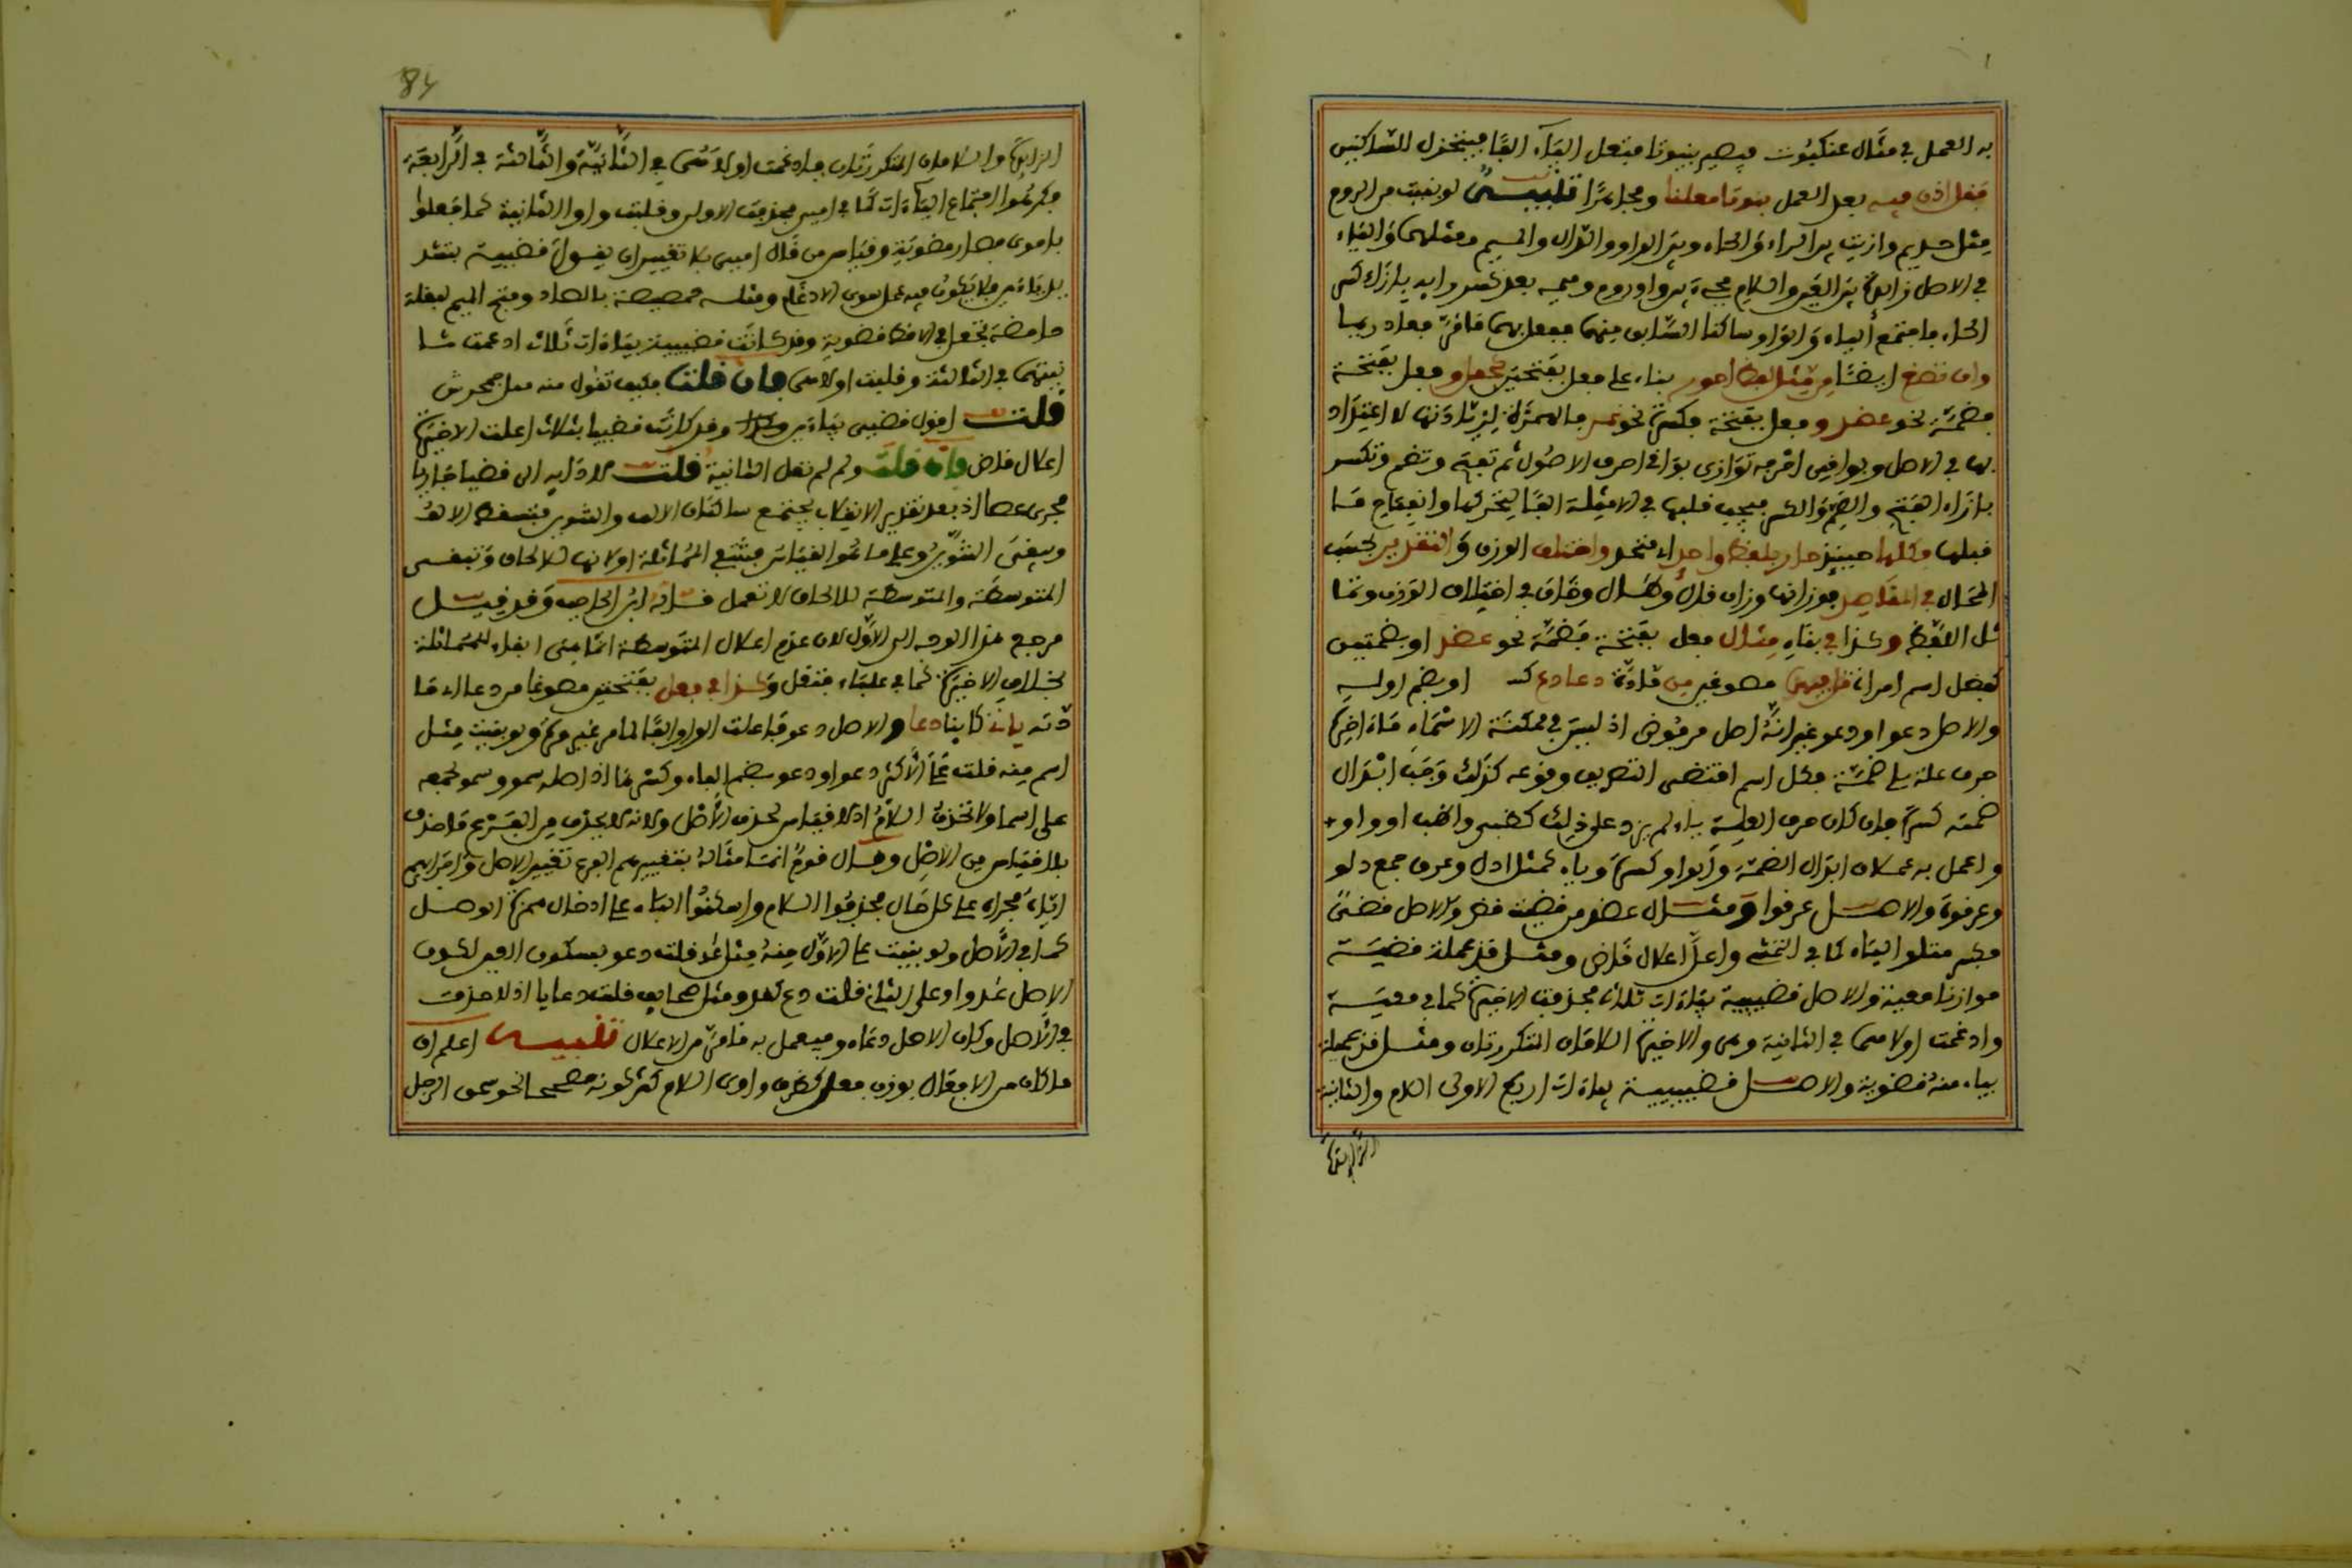 به العمل في مثال عنكبوت فيصير بنيوتا فتعل الياء الفا فينخزل للساكنين
فقل اذن فيه بعد العمل بنوتا معلنا ومجاهرا تنبيه لو بنيت من الروم
مثل حذيم وازنت بين الراء والحاء وبين الواو والذال والميم ومثلهما والياء
في الاصل زائدة بين العين واللام مجيء بين واو روم وميمه بعد كسر رايه بازاء كسر
الحاء فاجتمع الياء والواو ساكنا السابق منهما ففعل بهما ما مر فصار ريما
وان تصغ ايضا من مثل لفظ احور بناء على فعل بفتحتين كجمل وفعل بفتحة
فضمة نحو عضد وفعل بفتحة فكسرة نحو نمر فالهمزة لزيادتها لا اعتداد
بها في الاصل وبواقي احرفه توازي بواقي احرف الاصول ثم تفتح وتضم وتكسر
بازاء الفتح والضم والكسر فيجب قلبها في الامثلة الفا لتحركها وانفتاح ما
قبلها فكلها حينئذ حار بلفظ واحد متحد واختلف الوزن والتقدير بحسب
المحال في المقاصد فوزانها وزان فلك وهجان في اختلاف الوزن وتما
ثل اللفظ وكذا في بناء مثال فعل بفتحة فضمة نحو عضد او بضمتين
كفضل اسم امراة فابنهما مصوغين من مادة دعا دع كد او بضم اوليه
والاصل دعو او دعو غير انه اصل مرفوض اذ ليس في ممكنة الاسماء ما اخره
حرف علة يلي ضمة فكل اسم اقتضى التصريف وقوعه كذلك وجب ابدال
ضمته كسرة فان كان حرف العلة ياء لم يزد على ذلك كظبي واظب او واوا
واعمل به عملان ابدال الضمة والواو كسرة وياء كمثل ادل وعرق جمع دلو
وعرقوة والاصل عرقوا ومثال عضد من قضيت قض والاصل قضي
فكسر متلو الياء كما في التمشي واعل اعلال قاض ومثل قذعملة قضية
موازنا معية والاصل قضيية بياءات ثلاث محذوف الاخيرة كما في معية
وادغمت اولاهما في الثانية وهي والاخيرة اللامان المتكررتان ومثل قذعميلة
بياء منه قضوية والاصل قضيييية بياءات اربع الاولى اللام والثانية
الزائدة
84
الزائدة واللامان المتكررتان فادغمت اولاهن في الثانية والثالثة في الرابعة
فكرهوا اجتماع الياءات كما في اميي فحذفت الاولى وقلبت واوا الثانية كما فعلوا
باموي فصار قضوية وقياس من قال اميي بلا تغيير ان يقول قضيية بتشد
يد ياءين فلا يكون فيه عمل سوى الادغام ومثله حمصيصة بالصاد وفتح الميم لبقلة
حامضة تجعل في الاقط قضوية وقد كانت قضييية بياءات ثلاث ادغمت ثا
نيتها في الثالثة وقلبت اولاهن فان قلت فكيف تقول منه مثل جحمرش
قلت اقول قضيي بياءين وقد كانت قضييا بثلاث اعلت الاخيرة
اعلال قاض فان قلت ولم لم تعل الثانية قلت لادائه الى قضيا جاريا
مجرى عصا اذ بعد تقدير الانقلاب يجتمع ساكنان الالف والتنوين فتسقط الالف
ويبقى التنوين وعلى ما هو القياس فتنتفي المماثلة اولانها للالحاق وتبقى
المتوسطة والمتوسطة للالحاق لا تعمل قاله ابن الحاجب وقد قيل
مرجع هذا الوجه الى الاول لان عدم اعلال المتوسطة انما هي ابقاء للمماثلة
بخلاف الاخيرة كما في علباء فتقل وكذا في فعل بفتحتين مصوغا من دعا الا ما
دته يائنا كابنا دعا والاصل دعو فاعلت الواو الفا لما مر غير مرة ولو بنيت مثل
اسم منه قلت على الاكثر دعو او دعو بضم الفاء وكسرها اذ اصله سمو وسمو لجمعه
على اسما ولا تحذف اللام اذ لا قياس لحذف الاصل ولانه لا يحذف من الفرع ما حذف
بلا قياس من الاصل وقال قوم انما مثاله بتغييرهم الفرع تغيير الاصل واجرائهم
اياه مجراه على كل حال فحذفوا اللام واسكنوا الفاء على ادخال همزة الوصل
كما في الاصل ولو بنيت على الاول منه مثل غد قلت دعو بسكون العين لكون
الاصل غدوا وعلى الثاني قلت دع كغد ومثل صحايف قلت دعايا اذ لا حذف
في الاصل وكان الاصل دعاءو فيعمل به ما مر من الاعلال تنبيه اعلم ان
ما كان من الافعال بوزن فعل كظرف واوي اللام كثر كونه مصححا نحو سمو الرجل